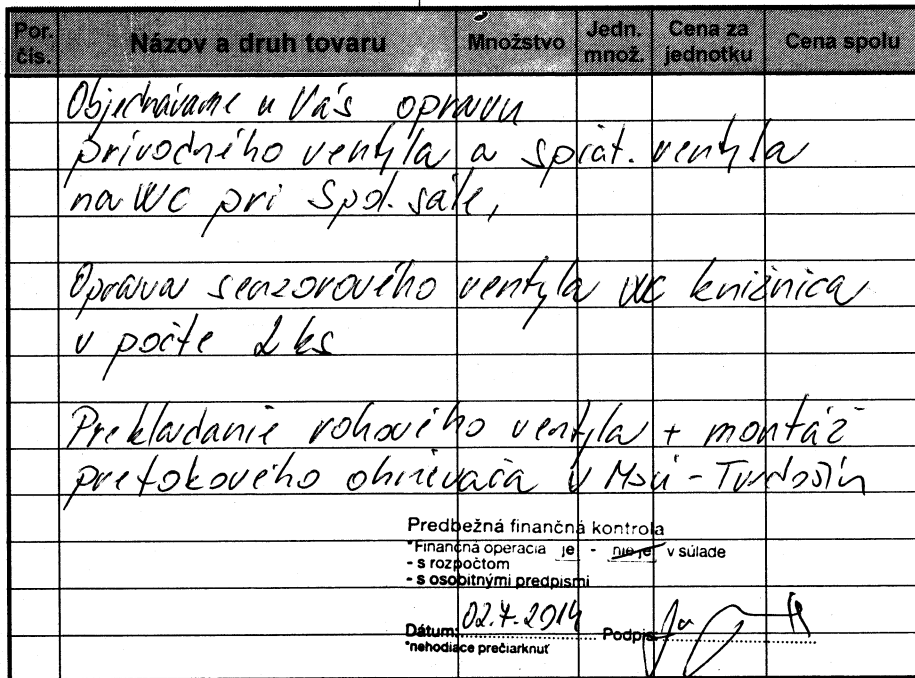 Por. čís. Názov a druh tovaru Množstvo Jedn. množ. Cena za jednotku Cena spolu
Objednávame u Vás opravu
prívodného ventyla a spiat. ventyla
na WC pri Spol. sále,
Oprava senzorového ventyla WC knižnica
v počte 2 ks
Prekladanie rohového ventyla + montáž
pretokového ohrievača v MsÚ - Tvrdošín
Predbežná finančná kontrola
*Finančná operácia je - nie je v súlade
- s rozpočtom
- s osobitnými predpismi
Dátum: 02.7.2014 Podpis
*nehodiace prečiarknuť